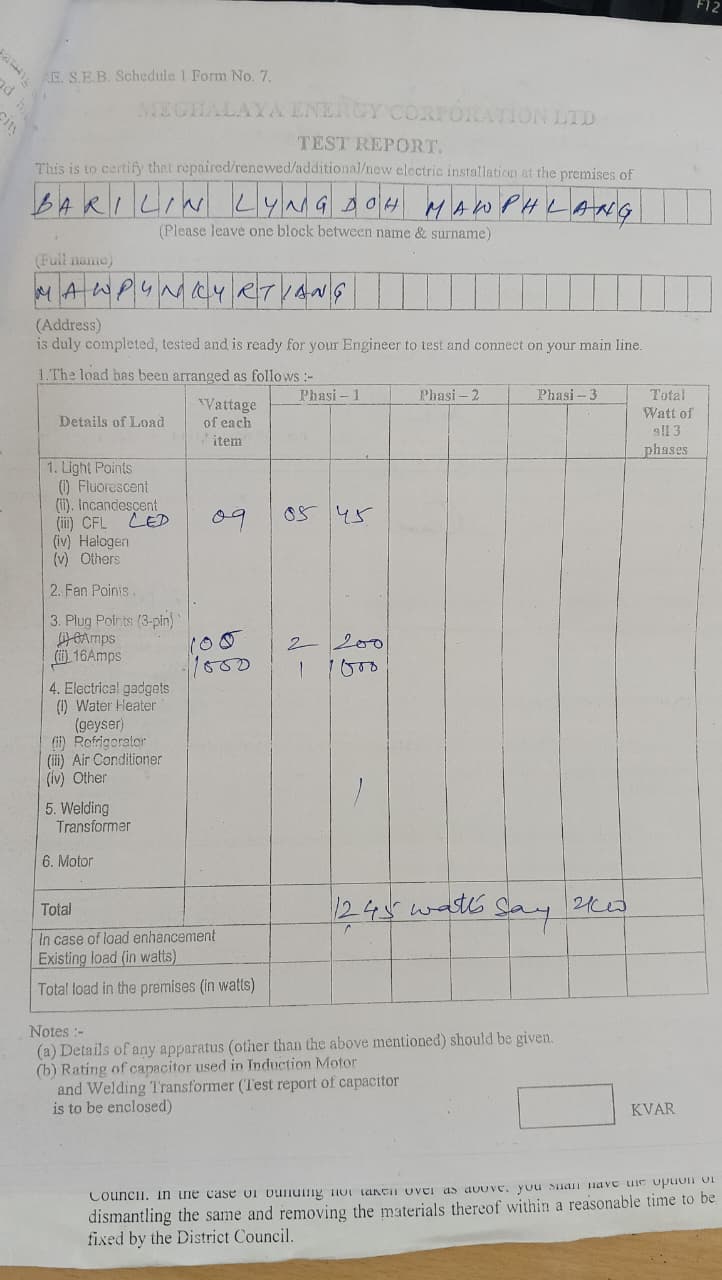 F12
E. S.E.B. Schedule 1 Form No. 7.
MEGHALAYA ENERGY CORPORATION LTD
TEST REPORT.
This is to certify that repaired/renewed/additional/new electric installation at the premises of
BARILIN LYNGDOH MAWPHLANG
(Please leave one block between name & surname)
(Full name)
MAWPYNKYRTIANG
(Address)
is duly completed, tested and is ready for your Engineer to test and connect on your main line.
1.The load has been arranged as follows :-
Details of Load
Wattage
of each
item
Phasi – 1
Phasi – 2
Phasi – 3
Total
Watt of
all 3
phases
1. Light Points
(i) Fluorescent
(ii). Incandescent
(iii) CFL LED 09 05 45
(iv) Halogen
(v) Others
2. Fan Points.
3. Plug Points (3-pin)
(i) 6Amps 100 2 200
(ii) 16Amps 1000 1 1000
4. Electrical gadgets
(I) Water Heater
(geyser)
(ii) Refrigerator
(iii) Air Conditioner
(iv) Other
5. Welding
Transformer
6. Motor
Total 1245 watts Say 2KW
In case of load enhancement
Existing load (in watts)
Total load in the premises (in watts)
Notes :-
(a) Details of any apparatus (other than the above mentioned) should be given.
(b) Rating of capacitor used in Induction Motor
and Welding Transformer (Test report of capacitor
is to be enclosed)
KVAR
Council. In the case of building not taken over as above, you shall have the option of
dismantling the same and removing the materials thereof within a reasonable time to be
fixed by the District Council.